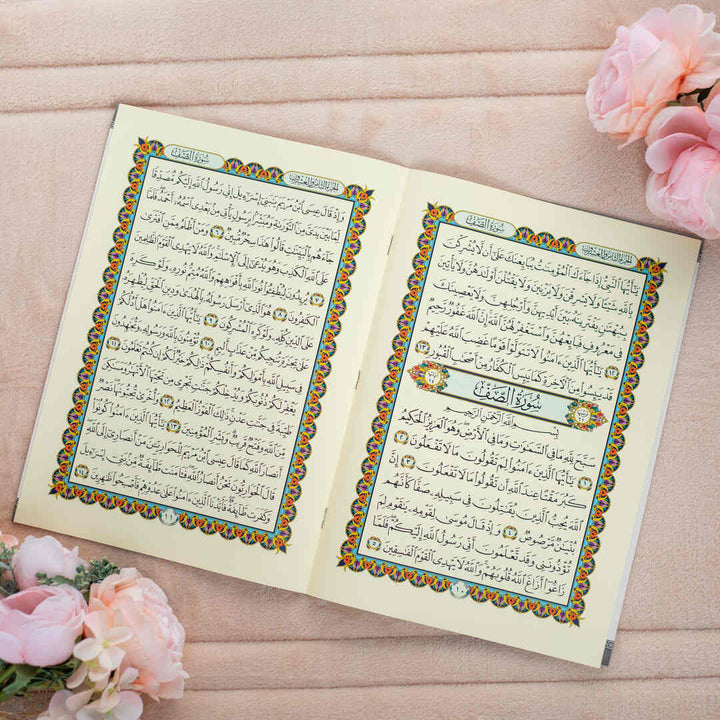 الجزء الثامن والعشرون
سُورَةُ الصَّفِّ
يَٰٓأَيُّهَا ٱلنَّبِيُّ إِذَا جَآءَكَ ٱلْمُؤْمِنَٰتُ يُبَايِعْنَكَ عَلَىٰٓ أَن لَّا يُشْرِكْنَ
بِٱللَّهِ شَيْـًٔا وَلَا يَسْرِقْنَ وَلَا يَزْنِينَ وَلَا يَقْتُلْنَ أَوْلَٰدَهُنَّ وَلَا يَأْتِينَ
بِبُهْتَٰنٍ يَفْتَرِينَهُۥ بَيْنَ أَيْدِيهِنَّ وَأَرْجُلِهِنَّ وَلَا يَعْصِينَكَ
فِي مَعْرُوفٍ فَبَايِعْهُنَّ وَٱسْتَغْفِرْ لَهُنَّ ٱللَّهَ إِنَّ ٱللَّهَ غَفُورٌ رَّحِيمٌ
١٢ يَٰٓأَيُّهَا ٱلَّذِينَ ءَامَنُوا۟ لَا تَتَوَلَّوْا۟ قَوْمًا غَضِبَ ٱللَّهُ عَلَيْهِمْ
قَدْ يَئِسُوا۟ مِنَ ٱلْءَاخِرَةِ كَمَا يَئِسَ ٱلْكُفَّارُ مِنْ أَصْحَٰبِ ٱلْقُبُورِ ١٣
سُورَةُ الصَّفِّ
بِسْمِ ٱللَّهِ ٱلرَّحْمَٰنِ ٱلرَّحِيمِ
سَبَّحَ لِلَّهِ مَا فِي ٱلسَّمَٰوَٰتِ وَمَا فِي ٱلْأَرْضِ وَهُوَ ٱلْعَزِيزُ ٱلْحَكِيمُ
١ يَٰٓأَيُّهَا ٱلَّذِينَ ءَامَنُوا۟ لِمَ تَقُولُونَ مَا لَا تَفْعَلُونَ ٢
كَبُرَ مَقْتًا عِندَ ٱللَّهِ أَن تَقُولُوا۟ مَا لَا تَفْعَلُونَ ٣ إِنَّ
ٱللَّهَ يُحِبُّ ٱلَّذِينَ يُقَٰتِلُونَ فِي سَبِيلِهِۦ صَفًّا كَأَنَّهُم
بُنْيَٰنٌ مَّرْصُوصٌ ٤ وَإِذْ قَالَ مُوسَىٰ لِقَوْمِهِۦ يَٰقَوْمِ لِمَ
تُؤْذُونَنِي وَقَد تَّعْلَمُونَ أَنِّي رَسُولُ ٱللَّهِ إِلَيْكُمْ فَلَمَّا
زَاغُوٓا۟ أَزَاغَ ٱللَّهُ قُلُوبَهُمْ وَٱللَّهُ لَا يَهْدِي ٱلْقَوْمَ ٱلْفَٰسِقِينَ ٥
١٠
الجزء الثامن والعشرون
سُورَةُ الصَّفِّ
وَإِذْ قَالَ عِيسَى ٱبْنُ مَرْيَمَ يَٰبَنِيٓ إِسْرَٰٓءِيلَ إِنِّي رَسُولُ ٱللَّهِ إِلَيْكُم مُّصَدِّقًا
لِّمَا بَيْنَ يَدَيَّ مِنَ ٱلتَّوْرَىٰةِ وَمُبَشِّرًۢا بِرَسُولٍ يَأْتِي مِنۢ بَعْدِي ٱسْمُهُۥٓ أَحْمَدُ فَلَمَّا
جَآءَهُم بِٱلْبَيِّنَٰتِ قَالُوا۟ هَٰذَا سِحْرٌ مُّبِينٌ ٦ وَمَنْ أَظْلَمُ مِمَّنِ ٱفْتَرَىٰ
عَلَى ٱللَّهِ ٱلْكَذِبَ وَهُوَ يُدْعَىٰٓ إِلَى ٱلْإِسْلَٰمِ وَٱللَّهُ لَا يَهْدِي ٱلْقَوْمَ ٱلظَّٰلِمِينَ
٧ يُرِيدُونَ لِيُطْفِـُٔوا۟ نُورَ ٱللَّهِ بِأَفْوَٰهِهِمْ وَٱللَّهُ مُتِمُّ نُورِهِۦ وَلَوْ كَرِهَ
ٱلْكَٰفِرُونَ ٨ هُوَ ٱلَّذِيٓ أَرْسَلَ رَسُولَهُۥ بِٱلْهُدَىٰ وَدِينِ ٱلْحَقِّ لِيُظْهِرَهُۥ
عَلَى ٱلدِّينِ كُلِّهِۦ وَلَوْ كَرِهَ ٱلْمُشْرِكُونَ ٩ يَٰٓأَيُّهَا ٱلَّذِينَ ءَامَنُوا۟ هَلْ أَدُلُّكُمْ
عَلَىٰ تِجَٰرَةٍ تُنجِيكُم مِّنْ عَذَابٍ أَلِيمٍ ١٠ تُؤْمِنُونَ بِٱللَّهِ وَرَسُولِهِۦ وَتُجَٰهِدُونَ
فِي سَبِيلِ ٱللَّهِ بِأَمْوَٰلِكُمْ وَأَنفُسِكُمْ ذَٰلِكُمْ خَيْرٌ لَّكُمْ إِن كُنتُمْ تَعْلَمُونَ ١١
يَغْفِرْ لَكُمْ ذُنُوبَكُمْ وَيُدْخِلْكُمْ جَنَّٰتٍ تَجْرِي مِن تَحْتِهَا ٱلْأَنْهَٰرُ وَمَسَٰكِنَ
طَيِّبَةً فِي جَنَّٰتِ عَدْنٍ ذَٰلِكَ ٱلْفَوْزُ ٱلْعَظِيمُ ١٢ وَأُخْرَىٰ تُحِبُّونَهَا نَصْرٌ
مِّنَ ٱللَّهِ وَفَتْحٌ قَرِيبٌ وَبَشِّرِ ٱلْمُؤْمِنِينَ ١٣ يَٰٓأَيُّهَا ٱلَّذِينَ ءَامَنُوا۟ كُونُوٓا۟
أَنصَارَ ٱللَّهِ كَمَا قَالَ عِيسَى ٱبْنُ مَرْيَمَ لِلْحَوَارِيِّـۧنَ مَنْ أَنصَارِيٓ إِلَى ٱللَّهِ
قَالَ ٱلْحَوَارِيُّونَ نَحْنُ أَنصَارُ ٱللَّهِ فَـَٔامَنَت طَّآئِفَةٌ مِّنۢ بَنِيٓ إِسْرَٰٓءِيلَ
وَكَفَرَت طَّآئِفَةٌ فَأَيَّدْنَا ٱلَّذِينَ ءَامَنُوا۟ عَلَىٰ عَدُوِّهِمْ فَأَصْبَحُوا۟ ظَٰهِرِينَ ١٤
١١